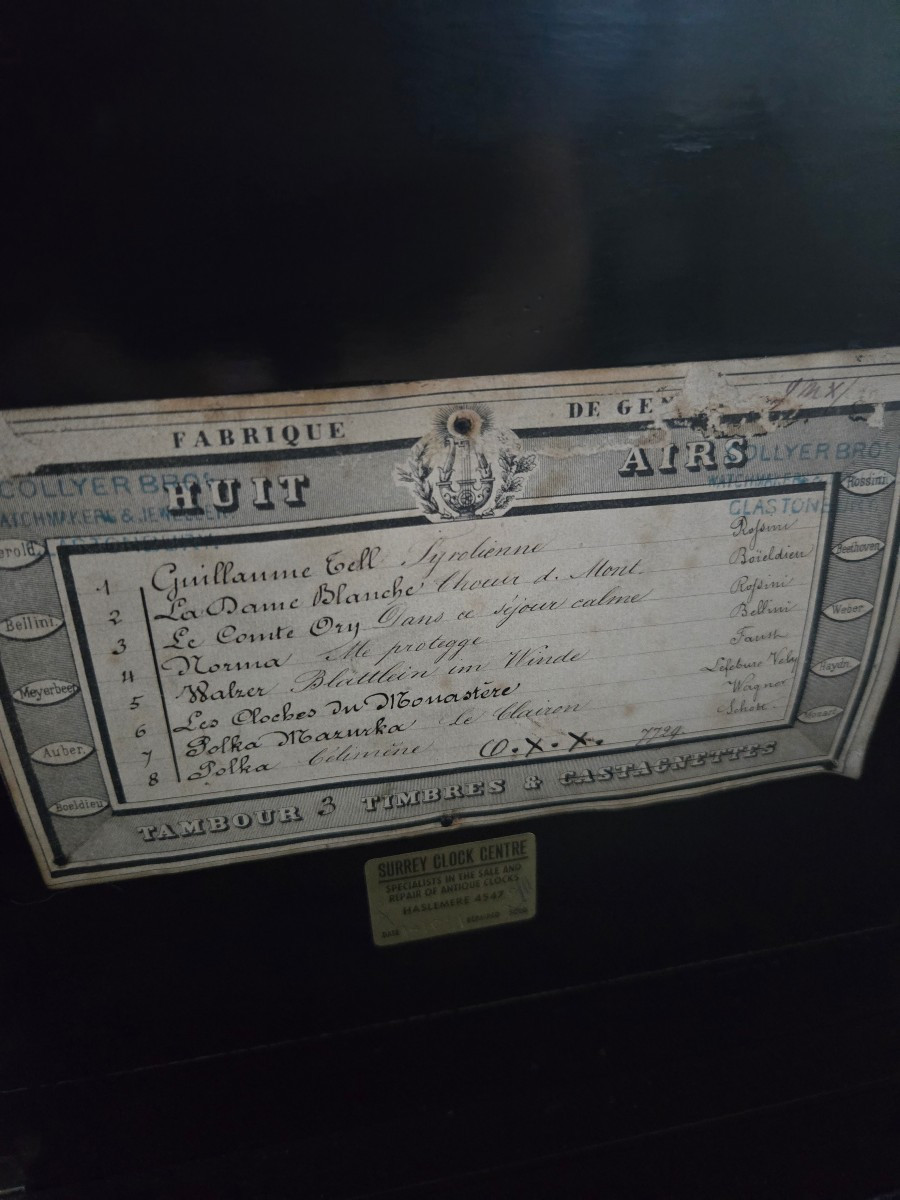 FABRIQUE DE GEN
HUIT AIRS
COLLYER BROS
WATCHMAKERS & JEWELLERS
GLASTONBURY
COLLYER BROS
WATCHMAKERS
GLASTONBURY
1 Guillaume Tell Tyrolienne Rossini
2 La Dame Blanche Choeur d. Mont. Boïeldieu
3 Le Comte Ory Dans ce séjour calme Rossini
4 Norma Me protegge Bellini
5 Walzer Blättlein im Winde Faust
6 Les Cloches du Monastère Lefebure Vely
7 Polka Mazurka Le Clairon Wagner
8 Polka Célimène
O.X.X. 7729
TAMBOUR 3 TIMBRES & CASTAGNETTES
erold.
Bellini.
Meyerbeer
Auber.
Boeldieu
Rossini
Beethoven
Weber.
Haydn.
Mozart
SURREY CLOCK CENTRE
SPECIALISTS IN THE SALE AND
REPAIR OF ANTIQUE CLOCKS
HASLEMERE 4547
DATE